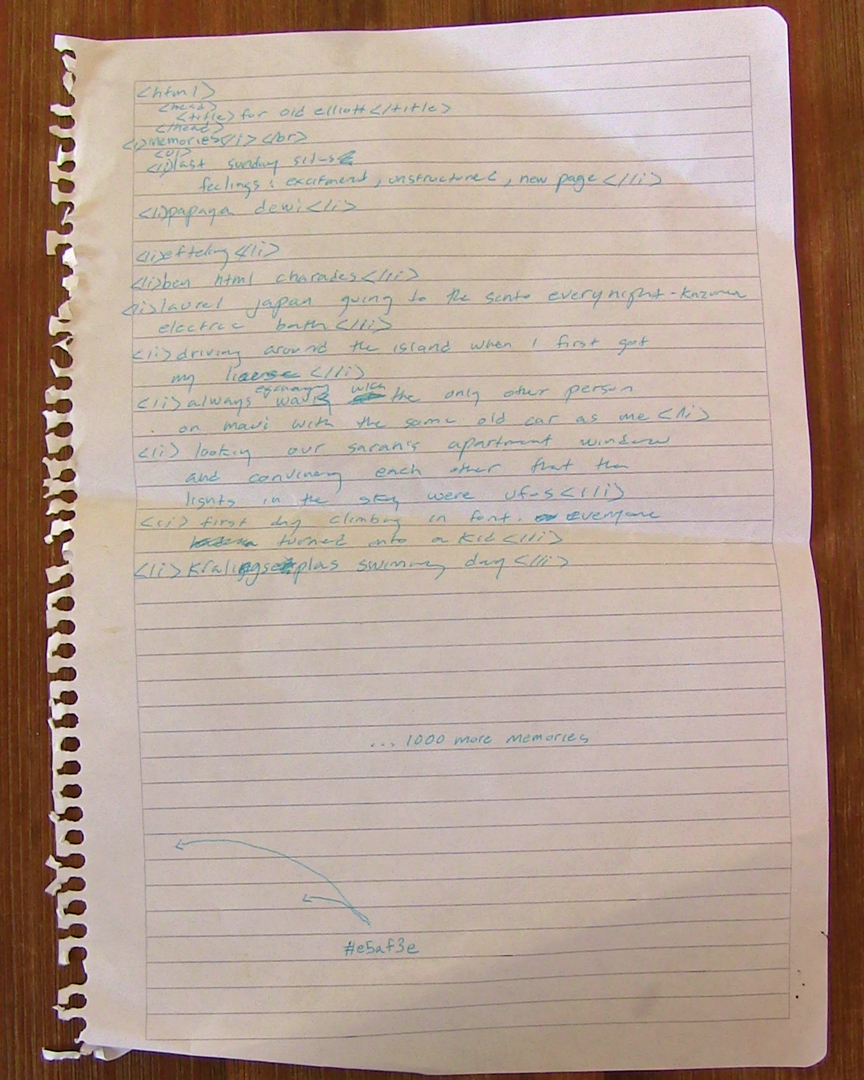 <html>
<head>
<title> for old elliott </title>
</head>
<i>memories</i></br>
<ul>
<li>last sunday silus
feelings: excitment, unstructured, new page <//i>
<li>papaya dewi</li>
<li>efteling</li>
<li>ben html charades</li>
<li>laurel japan going to the sento everynight - kazuma
electric bath </li>
<li> driving around the island when I first got
my license </li>
<li> always waving the only other person
on maui with the same old car as me </li>
<li> looking our sarah's apartment window
and convincing each other that the
lights in the sky were ufos </li>
<li> first day climbing in font. everyone
turned into a kid </li>
<li> kralingseplas swimming day </li>
... 1000 more memories
#e5af3e